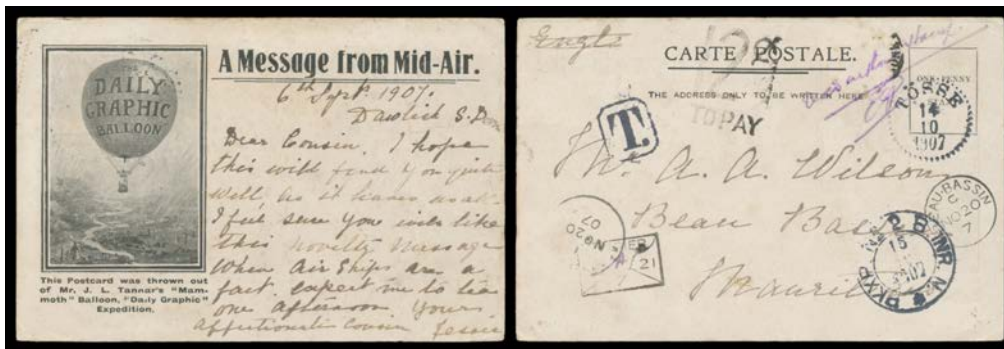 THE
DAILY
GRAPHIC
BALLOON
This Postcard was thrown out
of Mr. J. L. Tannar's "Mam-
moth" Balloon, "Daily Graphic"
Expedition.
A Message from Mid-Air.
6th Sept. 1907.
Dawlish S.D
Dear Cousin. I hope
this will find you quite
well, as it leaves us all
I feel sure you will like
this novelty message
When Air Ships are a
fact. expect me to tea
one afternoon Yours
Affectionate Cousin Jessie
CARTE POSTALE.
THE ADDRESS ONLY TO BE WRITTEN HERE
ONE PENNY
TO PAY
T.
TÖSSE
14
10
1907
Mr. A. A. Wilson
Beau Bassin
Mauritius
BEAU-BASSIN
C
NO 20
7
NO 20
07
21
PKXP
15
1907